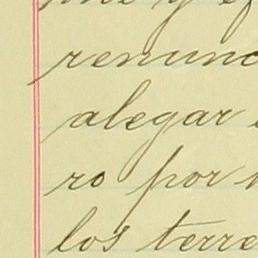 y
renunc
alegar
ro por
los terre